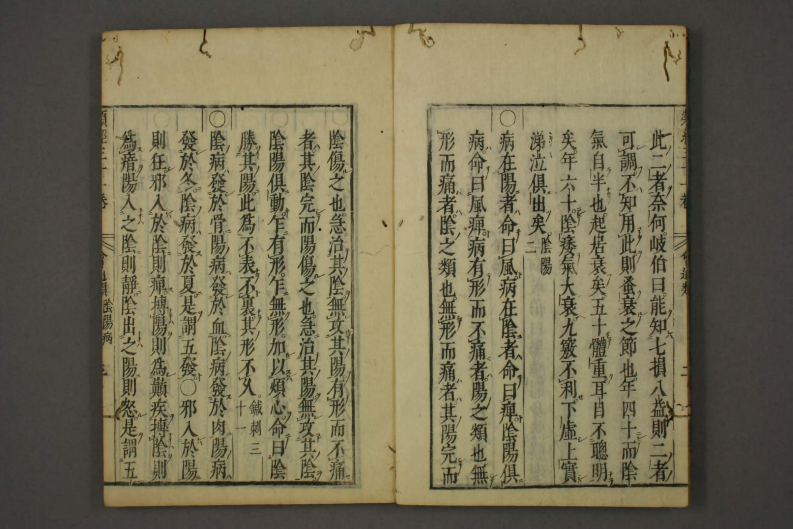 此二者奈何岐伯曰能知七損八益則二者
可調不知用此則蚤衰之節也年四十而陰
氣自半也起居衰矣五十體重耳目不聰明
矣年六十陰痿氣大衰九竅不利下虛上實
涕泣俱出矣陰陽二
〇病在陽者命曰風病在陰者命曰痺陰陽俱
病命曰風痺病有形而不痛者陽之類也無
形而痛者陰之類也無形而痛者其陽完而
陰傷之也急治其陰無攻其陽有形而不痛
者其陰完而陽傷之也急治其陽無攻其陰
陰陽俱動乍有形乍無形加以煩心命曰陰
勝其陽此爲不表不裏其形不久鍼刺三十一
〇陰病發於骨陽病發於血陰病發於肉陽病
發於冬陰病發於夏是謂五發〇邪入於陽
則狂邪入於陰則痺搏陽則爲巔疾搏陰則
爲瘖陽入之陰則靜陰出之陽則怒是謂五
類經三十一卷
會通類
陰陽病